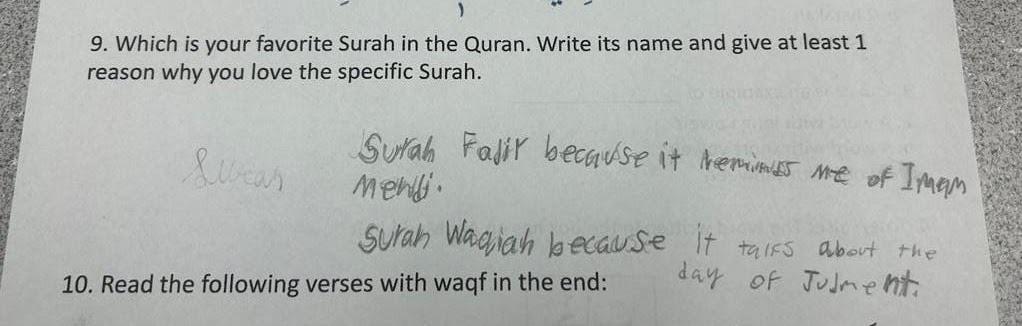 9. Which is your favorite Surah in the Quran. Write its name and give at least 1
reason why you love the specific Surah.
Surah Fajir because it reminds me of Imam
Mehdi.
Surah Waqiah because it talks about the
day of Judment.
10. Read the following verses with waqf in the end: